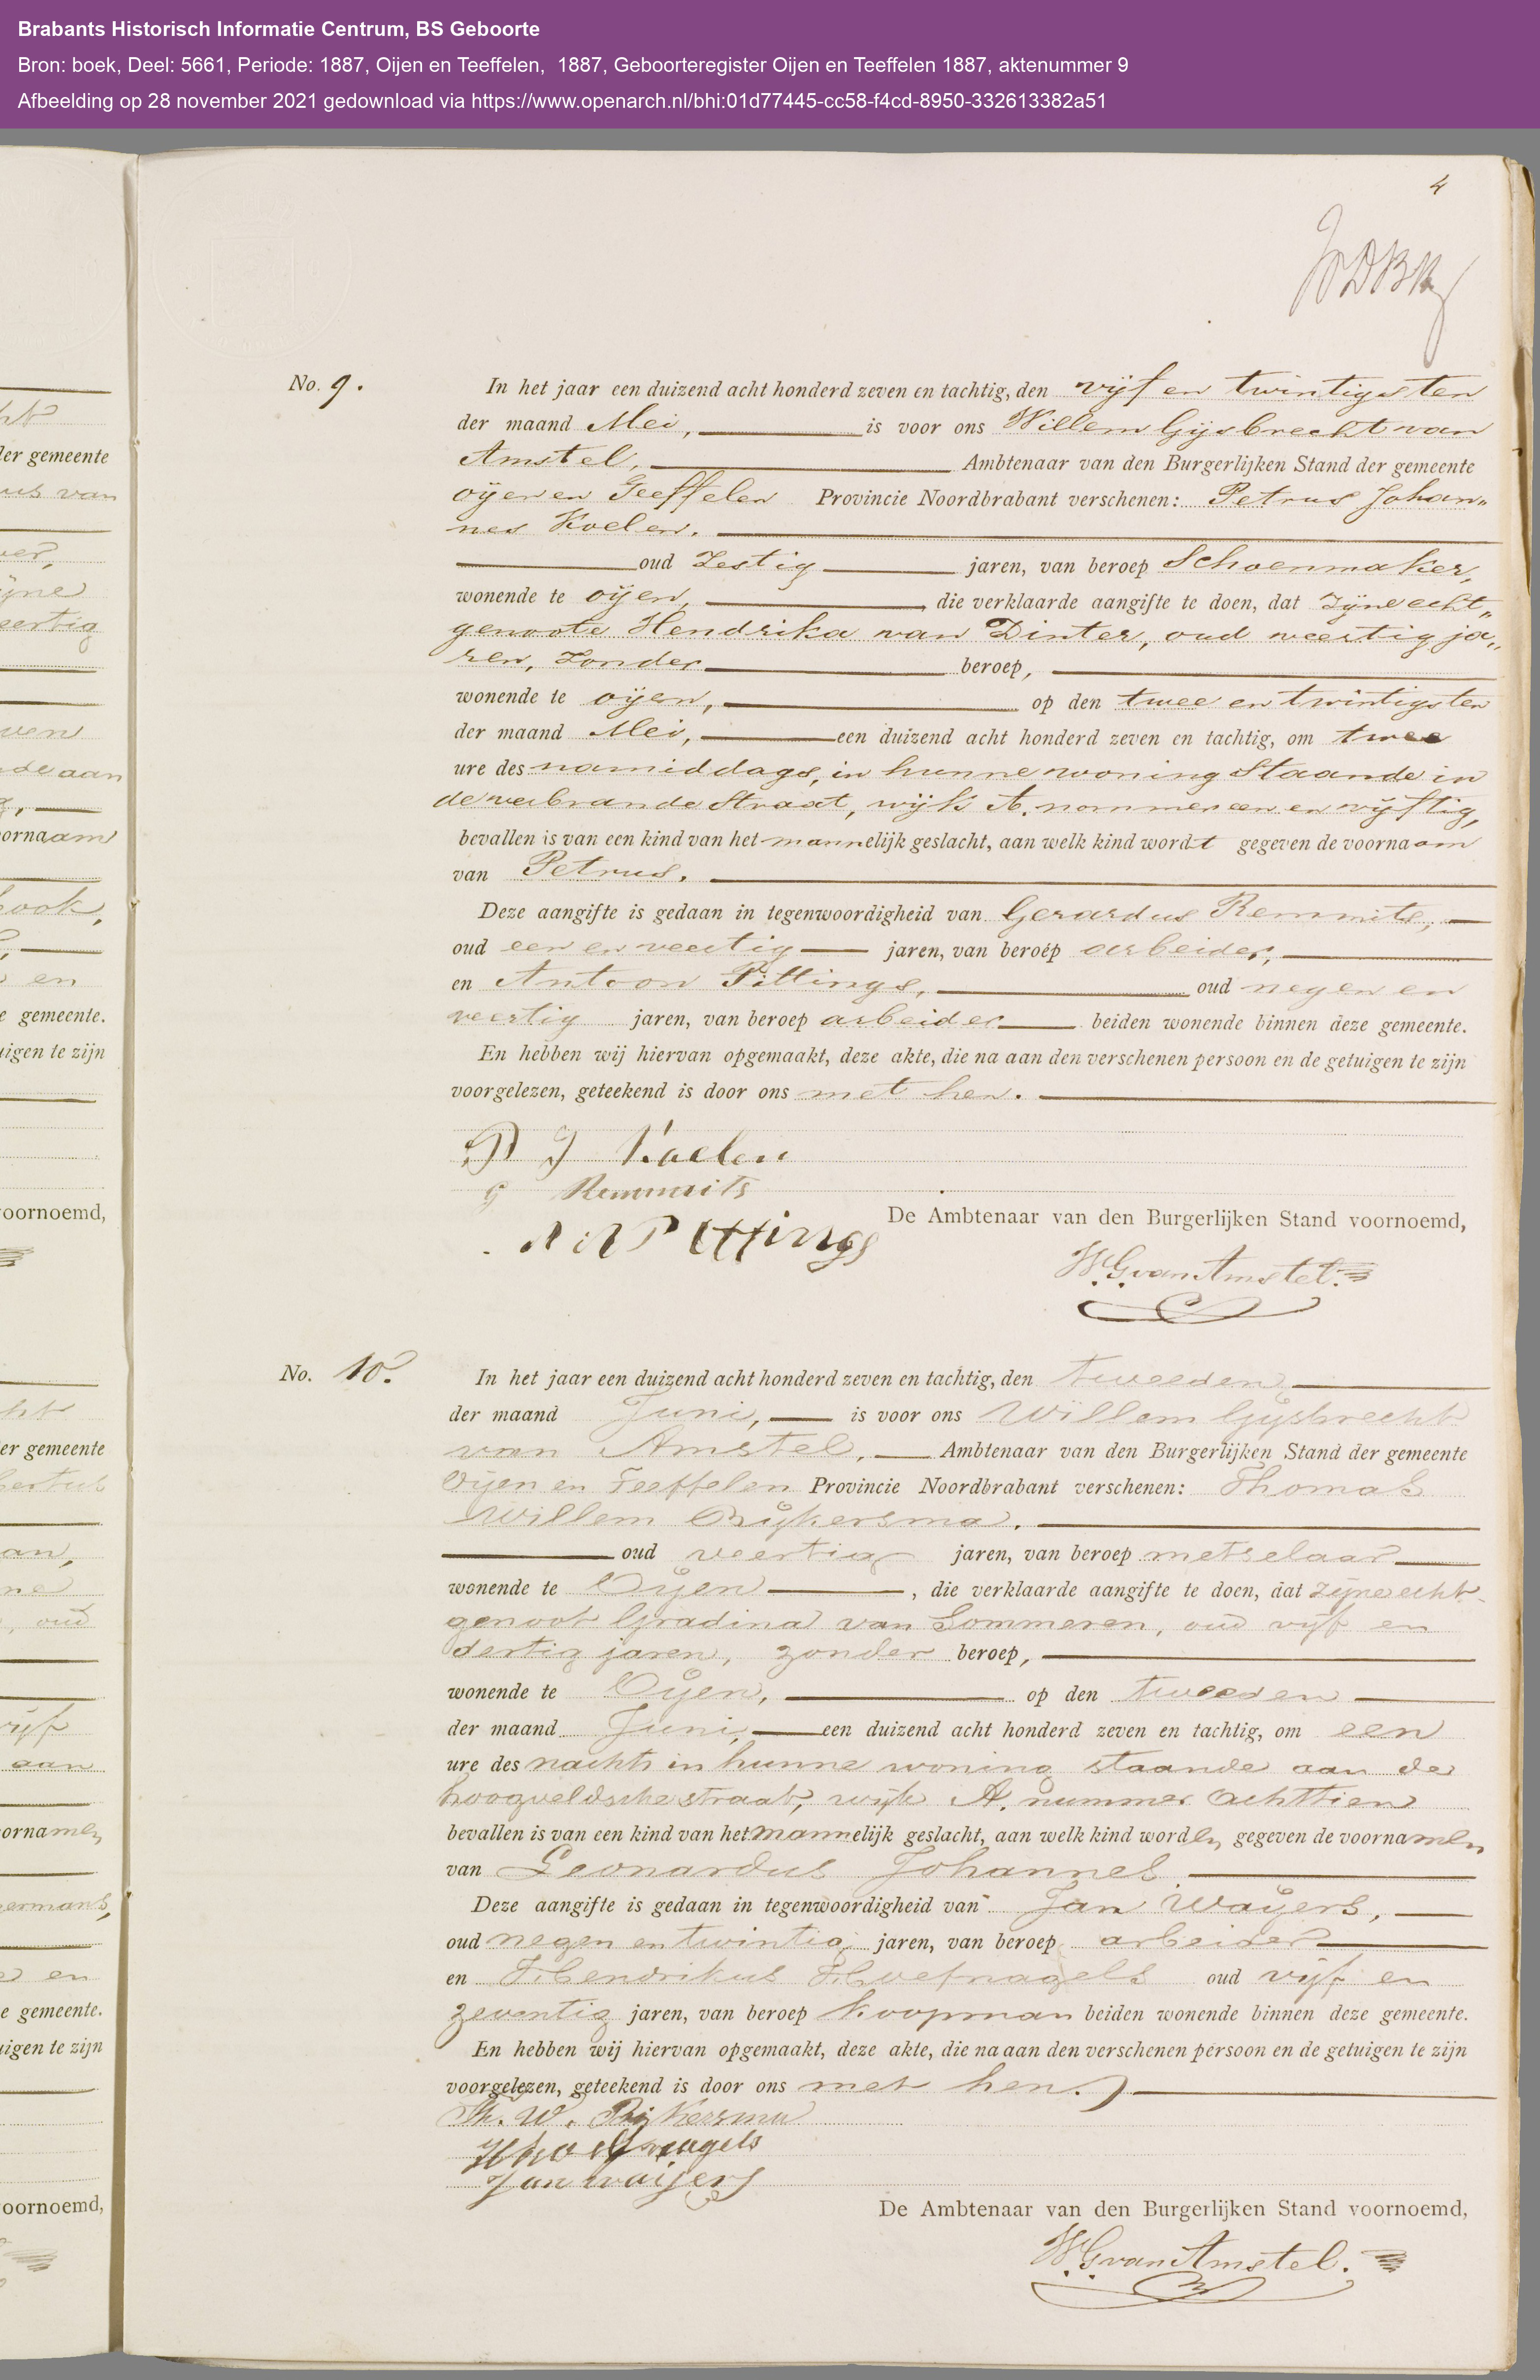 Brabants Historisch Informatie Centrum, BS Geboorte
Bron: boek, Deel: 5661, Periode: 1887, Oijen en Teeffelen, 1887, Geboorteregister Oijen en Teeffelen 1887, aktenummer 9
Afbeelding op 28 november 2021 gedownload via https://www.openarch.nl/bhi:01d77445-cc58-f4cd-8950-332613382a51
4
No. 9.
In het jaar een duizend acht honderd zeven en tachtig, den vijf en twintigsten
der maand Mei, is voor ons Willem Gijsbrecht van
Amstel, Ambtenaar van den Burgerlijken Stand der gemeente
oijen en Teeffelen Provincie Noordbrabant verschenen: Petrus Johan„
nes Koelen.
oud Zestig jaren, van beroep Schoenmaker,
wonende te oijen, die verklaarde aangifte te doen, dat zijne echt„
genoote Hendrika van Dinter, oud veertig ja„
ren, zonder beroep,
wonende te oijen, op den twee en twintigsten
der maand Mei, een duizend acht honderd zeven en tachtig, om twee
ure des namiddags, in hunne woning Staande in
de verbrande Straat, wijk A. nommer een en vijftig,
bevallen is van een kind van het mannelijk geslacht, aan welk kind wordt gegeven de voornaam
van Petrus.
Deze aangifte is gedaan in tegenwoordigheid van Gerardus Remmits,
oud een en veertig jaren, van beroep arbeider,
en Antoon Pittings, oud negen en
veertig jaren, van beroep arbeider beiden wonende binnen deze gemeente.
En hebben wij hiervan opgemaakt, deze akte, die na aan den verschenen persoon en de getuigen te zijn
voorgelezen, geteekend is door ons met hen.
P J Koelen
G Remmits
Pittings
De Ambtenaar van den Burgerlijken Stand voornoemd,
W. G. van Amstel.
No. 10.
In het jaar een duizend acht honderd zeven en tachtig, den tweeden
der maand Juni, is voor ons Willem Gijsbrecht
van Amstel, Ambtenaar van den Burgerlijken Stand der gemeente
Oijen en Teeffelen Provincie Noordbrabant verschenen: Thomas
Willem Rijkersma.
oud veertig jaren, van beroep metselaar
wonende te Oijen, die verklaarde aangifte te doen, dat zijne echt
genoot Gradina van Sommeren, oud vijf en
dertig jaren, zonder beroep,
wonende te Oijen, op den tweeden
der maand Juni, een duizend acht honderd zeven en tachtig, om een
ure des nachts in hunne woning staande aan de
hoogveldsche straat, wijk A. nummer achttien
bevallen is van een kind van het mannelijk geslacht, aan welk kind worden gegeven de voornamen
van Leonardus Johannes
Deze aangifte is gedaan in tegenwoordigheid van Jan Waijers,
oud negen en twintig jaren, van beroep arbeider
en Hendrikus Hoefnagels oud vijf en
zeventig jaren, van beroep koopman beiden wonende binnen deze gemeente.
En hebben wij hiervan opgemaakt, deze akte, die na aan den verschenen persoon en de getuigen te zijn
voorgelezen, geteekend is door ons met hen.
Th. W. Rijkersma
H hoefnagels
Jan waijers
De Ambtenaar van den Burgerlijken Stand voornoemd,
W. G. van Amstel.